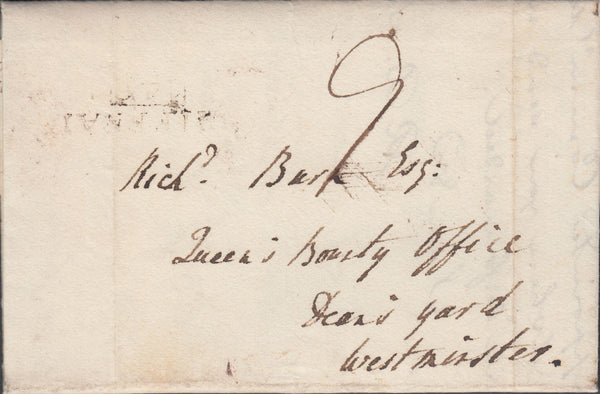 9
Richd. Burn Esq:
Queen's Bounty Office
Dean's yard
Westminster.